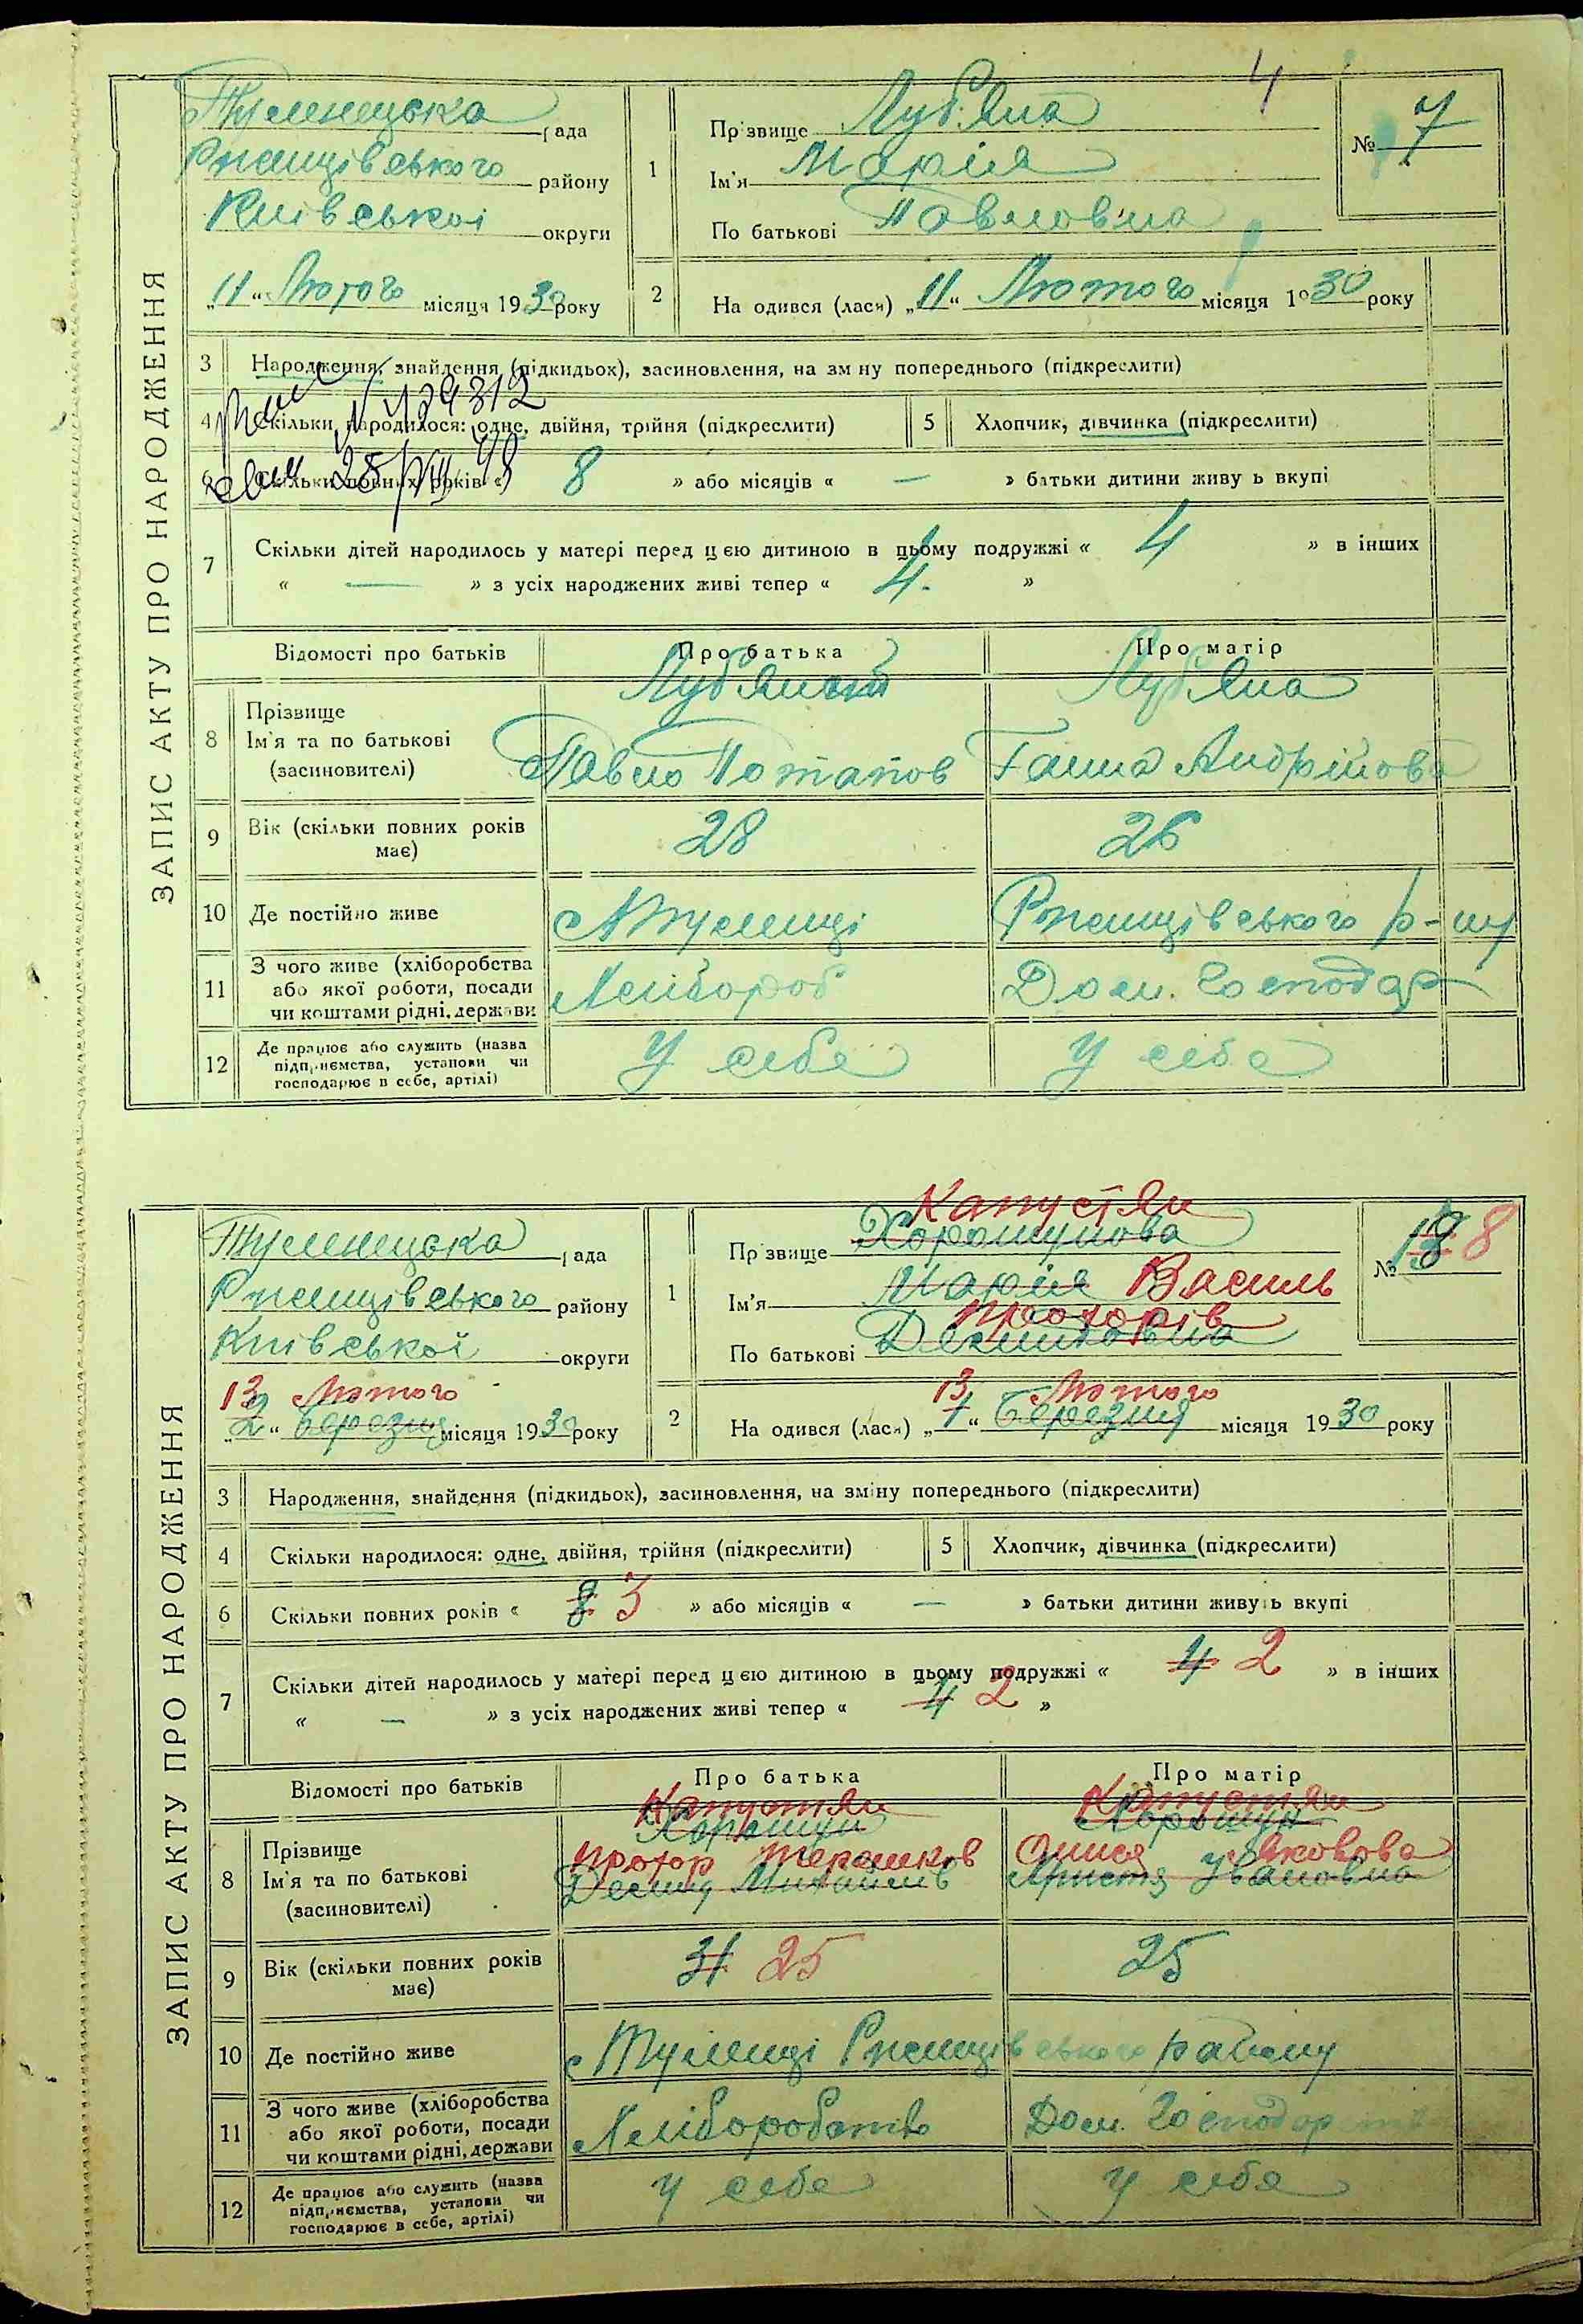 4
ЗАПИС АКТУ ПРО НАРОДЖЕННЯ
Тулинецька рада
Ржищівського району
Київської округи
„11“ Лютого місяця 1930 року
1
Прізвище Луб'яна
Ім'я Марія
По батькові Павловна
№ 7
2 На одився (лася) „11“ Лютого місяця 1930 року
3 Народження, знайдення (підкидьох), засиновлення, на зм ну попереднього (підкреслити)
4 Скільки народилося: одне, двійня, трійня (підкреслити)
5 Хлопчик, дівчинка (підкреслити)
6 Скільки повних років « 8 » або місяців « — » батьки дитини живу ь вкупі
7 Скільки дітей народилось у матері перед цею дитиною в цьому подружжі « 4 » в інших
« — » з усіх народжених живі тепер « 4. »
Відомості про батьків Про батька Про матір
8 Прізвище
Ім'я та по батькові
(засиновителі)
Луб'яний
Павло Потапов
Луб'яна
Ганна Андрійова
9 Вік (скільки повних років має) 28 26
10 Де постійно живе с Тулинці Ржищівського р-ну
11 З чого живе (хліборобства або якої роботи, посади чи коштами рідні, держави Хлібороб Дом. господар
12 Де працює або служить (назва підприємства, установи чи господарює в себе, артілі) У себе У себе
ЗАПИС АКТУ ПРО НАРОДЖЕННЯ
Тулинецька рада
Ржищівського району
Київської округи
13 Лютого
„2“ березня місяця 1930 року
1
Капустян
Прізвище Хорошунова
Ім'я Марія Василь
Прохорів
По батькові Демидовна
№ 8
13 Лютого
2 На одився (лася) „1“ Березня місяця 1930 року
3 Народження, знайдення (підкидьок), засиновлення, на зміну попереднього (підкреслити)
4 Скільки народилося: одне, двійня, трійня (підкреслити)
5 Хлопчик, дівчинка (підкреслити)
6 Скільки повних років « 8 3 » або місяців « — » батьки дитини живуть вкупі
7 Скільки дітей народилось у матері перед цею дитиною в цьому подружжі « 4 2 » в інших
« — » з усіх народжених живі тепер « 4 2 »
Відомості про батьків Про батька Про матір
8 Прізвище
Ім'я та по батькові
(засиновителі)
Капустян
Хорошун
Прохор Терешков
Демид Михайлів
Капустян
Хорошун
Опися Яковова
Христя Ивановна
9 Вік (скільки повних років має) 31 25 25
10 Де постійно живе с Тулинці Ржищівського району
11 З чого живе (хліборобства або якої роботи, посади чи коштами рідні, держави Хліборобство Дом. господар
12 Де працює або служить (назва підприємства, установи чи господарює в себе, артілі) У себе У себе